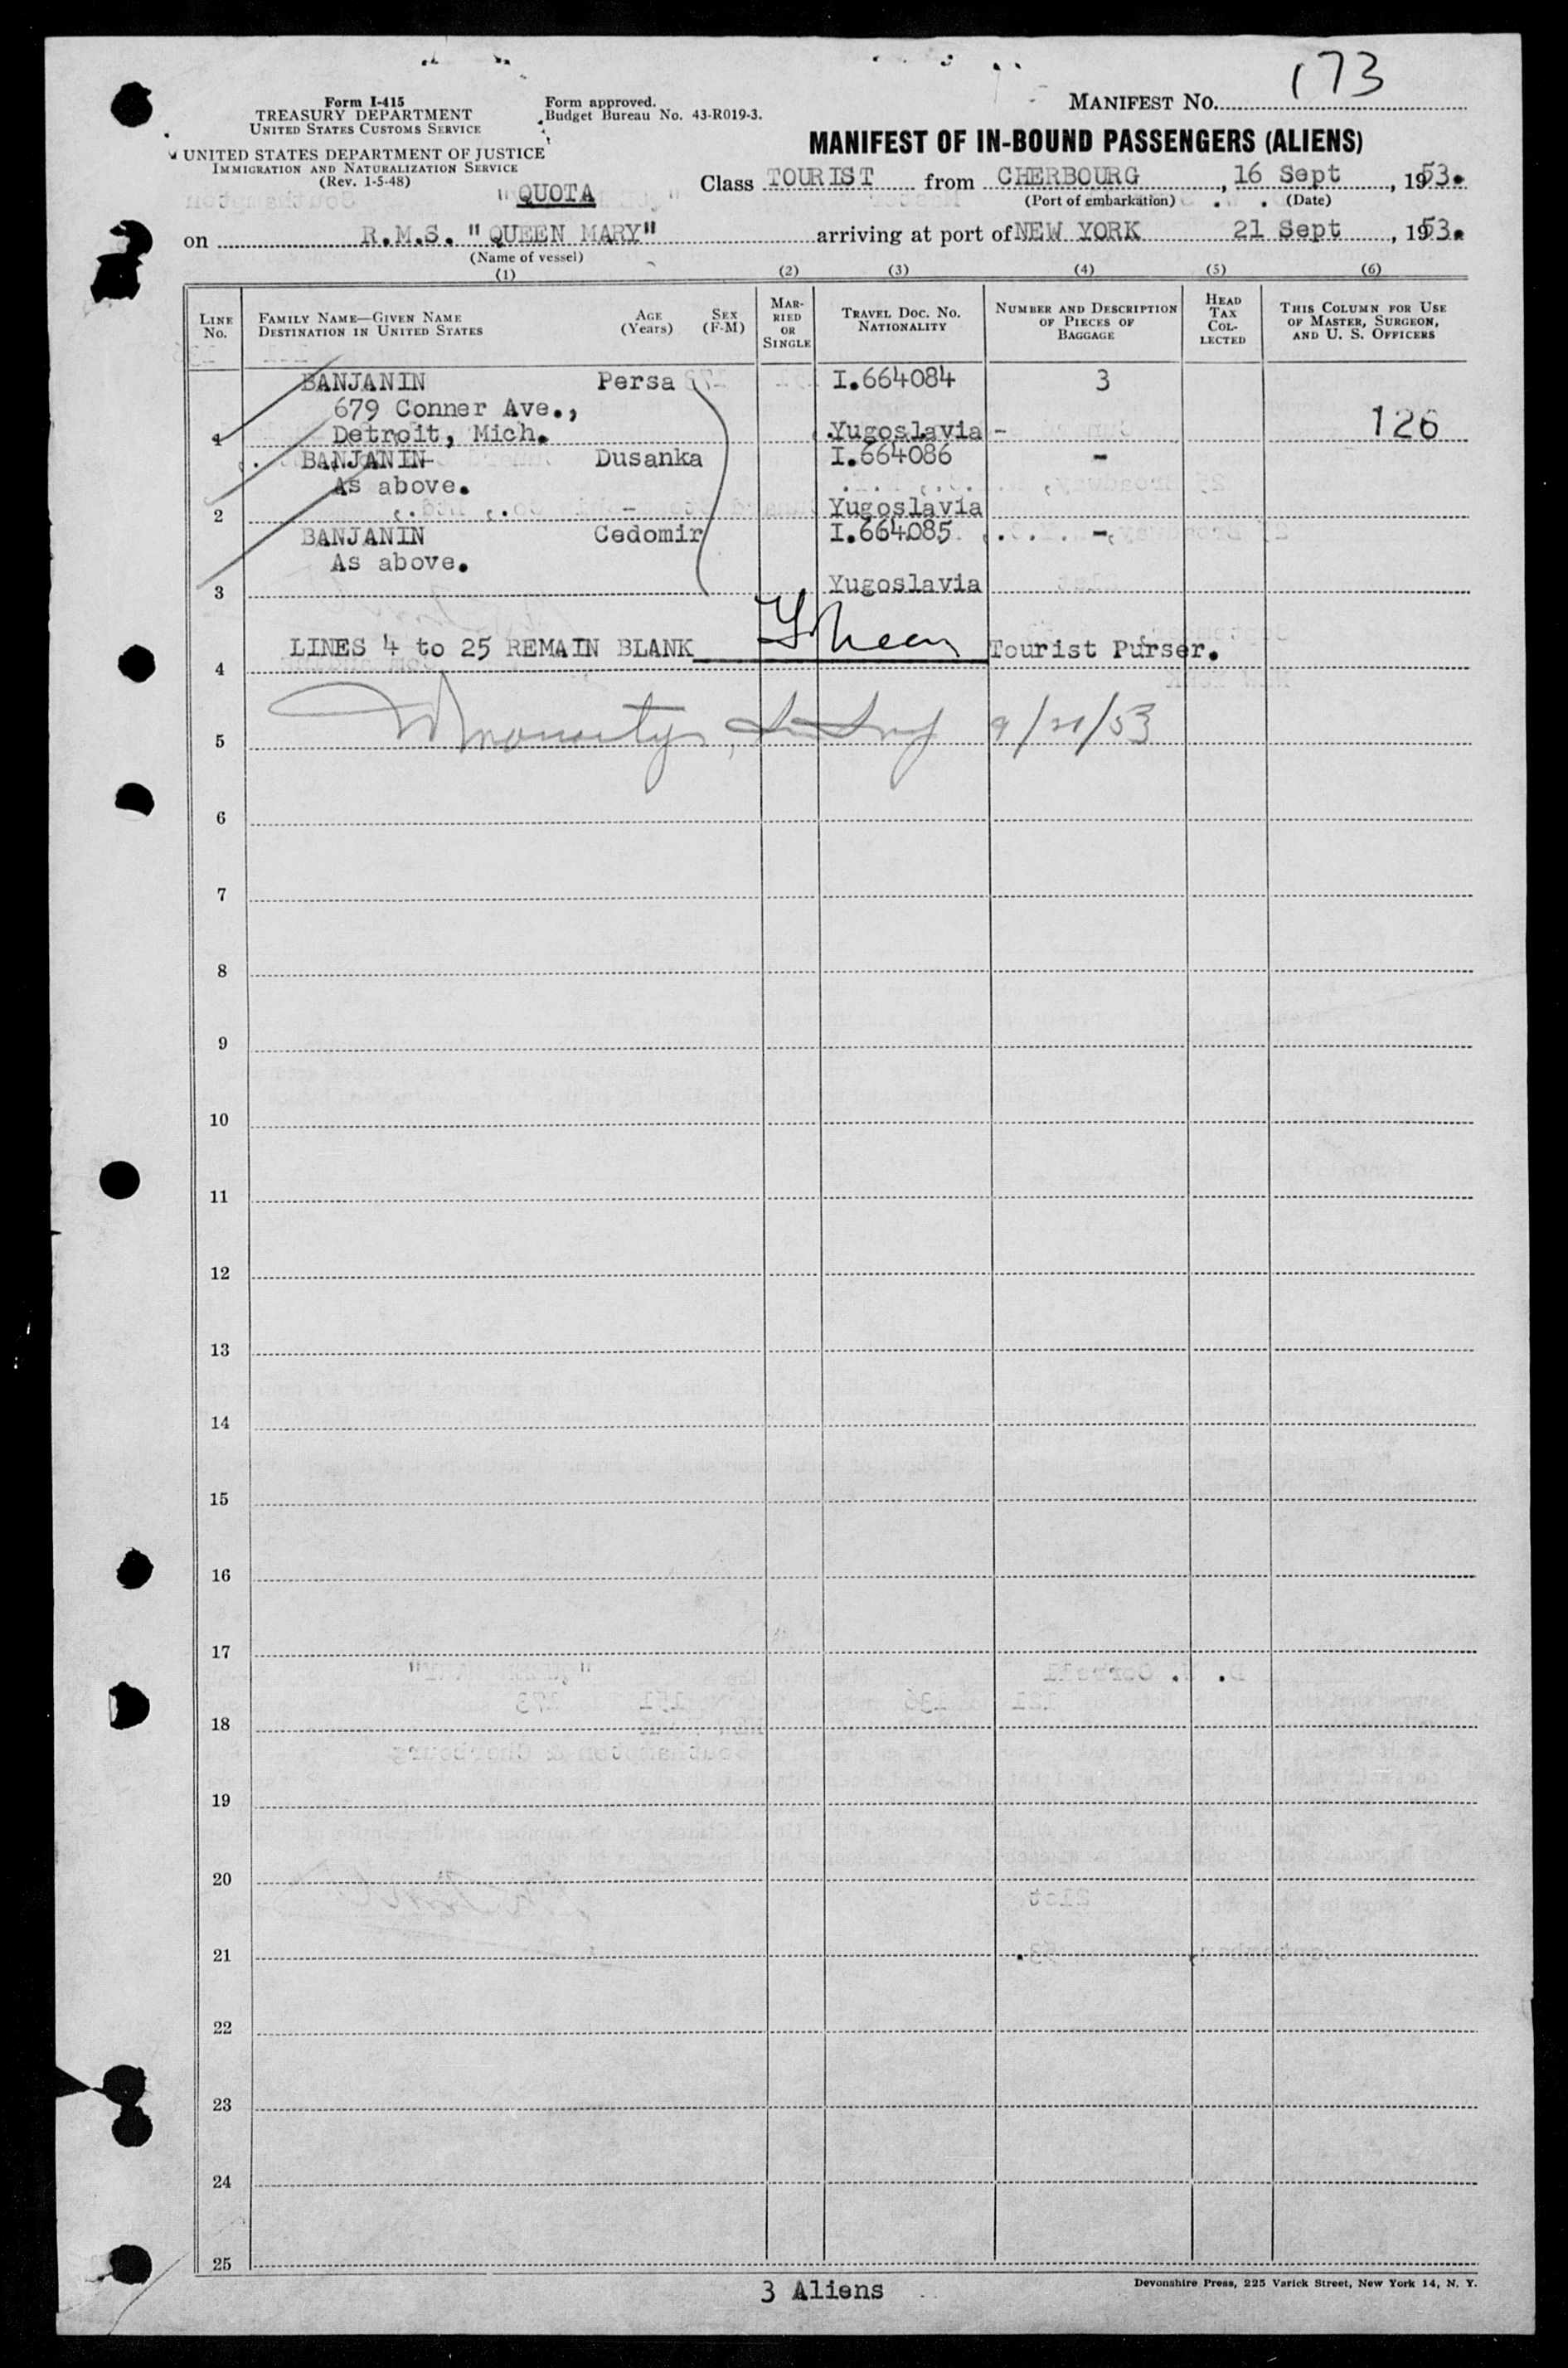 173
Form I-415
TREASURY DEPARTMENT
UNITED STATES CUSTOMS SERVICE
Form approved.
Budget Bureau No. 43-R019-3.
MANIFEST NO.
UNITED STATES DEPARTMENT OF JUSTICE
IMMIGRATION AND NATURALIZATION SERVICE
(Rev. 1-5-48)
MANIFEST OF IN-BOUND PASSENGERS (ALIENS)
"QUOTA"
Class TOURIST from CHERBOURG, 16 Sept, 1953.
(Port of embarkation) (Date)
on R.M.S. "QUEEN MARY" arriving at port of NEW YORK 21 Sept, 1953.
(Name of vessel)
(1) (2) (3) (4) (5) (6)
LINE NO.
FAMILY NAME—GIVEN NAME
DESTINATION IN UNITED STATES
AGE (Years)
SEX (F-M)
MARRIED OR SINGLE
TRAVEL DOC. NO. NATIONALITY
NUMBER AND DESCRIPTION OF PIECES OF BAGGAGE
HEAD TAX COLLECTED
THIS COLUMN FOR USE OF MASTER, SURGEON, AND U. S. OFFICERS
BANJANIN Persa I.664084 3
679 Conner Ave.,
1 Detroit, Mich. Yugoslavia - 126
BANJANIN Dusanka I.664086 -
As above.
2 Yugoslavia
BANJANIN Cedomir I.664085 -
As above.
3 Yugoslavia
LINES 4 to 25 REMAIN BLANK Tourist Purser.
4
5 9/21/53
6
7
8
9
10
11
12
13
14
15
16
17
18
19
20
21
22
23
24
25
3 Aliens
Devonshire Press, 225 Varick Street, New York 14, N. Y.